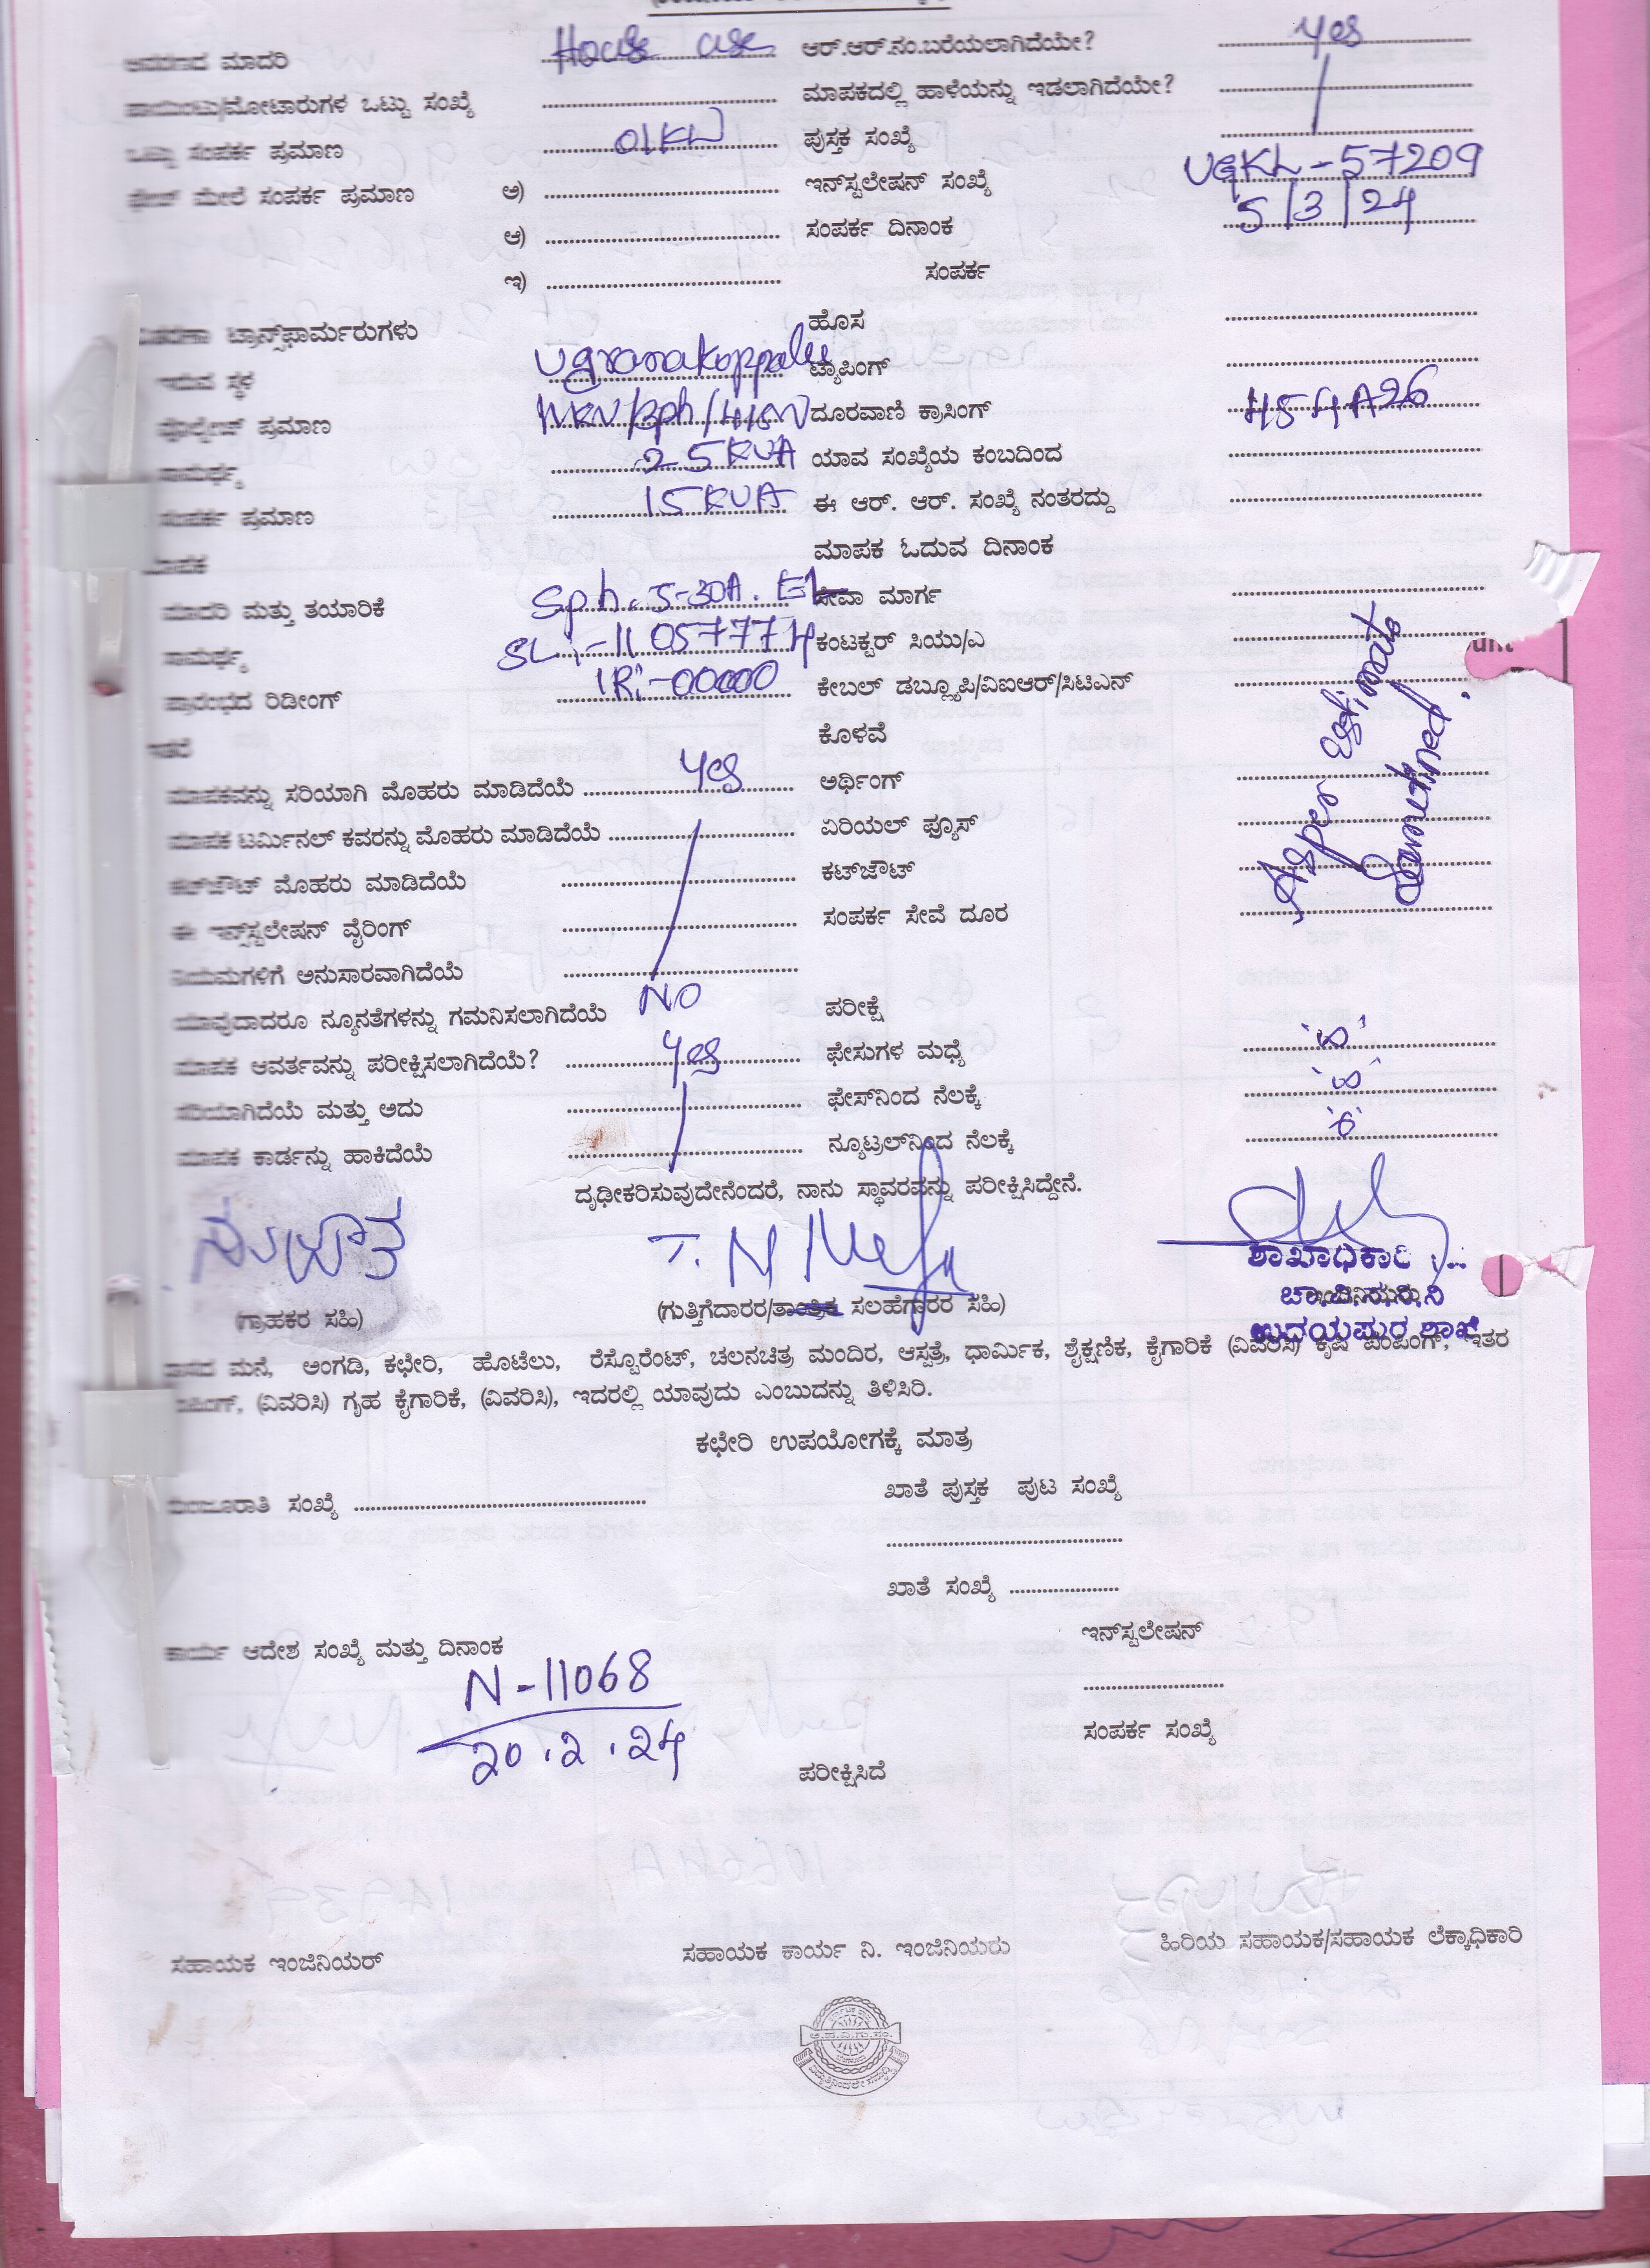 ಮಾದರಿ House use ಆರ್.ಆರ್.ನಂ.ಬರೆಯಲಾಗಿದೆಯೇ? Yes
ಪಾಯಿಂಟು/ಮೋಟಾರುಗಳ ಒಟ್ಟು ಸಂಖ್ಯೆ ಮಾಪಕದಲ್ಲಿ ಹಾಳೆಯನ್ನು ಇಡಲಾಗಿದೆಯೇ?
ಒಟ್ಟು ಸಂಪರ್ಕ ಪ್ರಮಾಣ 01KW ಪುಸ್ತಕ ಸಂಖ್ಯೆ
ಮೇಲೆ ಸಂಪರ್ಕ ಪ್ರಮಾಣ ಅ) ಇನ್‌ಸ್ಟಲೇಷನ್ ಸಂಖ್ಯೆ UGKL-57209
ಆ) ಸಂಪರ್ಕ ದಿನಾಂಕ 5/3/24
ಇ) ಸಂಪರ್ಕ
ಟ್ರಾನ್ಸ್‌ಫಾರ್ಮರುಗಳು ಹೊಸ
ಇರುವ ಸ್ಥಳ Ugranakoppalu ಟ್ಯಾಪಿಂಗ್
ವೋಲ್ಟೇಜ್ ಪ್ರಮಾಣ 11KV/3ph/ ದೂರವಾಣಿ ಕ್ರಾಸಿಂಗ್ 454A26
ಸಾಮರ್ಥ್ಯ 25KVA ಯಾವ ಸಂಖ್ಯೆಯ ಕಂಬದಿಂದ
ಸಂಪರ್ಕ ಪ್ರಮಾಣ 15KVA ಈ ಆರ್. ಆರ್. ಸಂಖ್ಯೆ ನಂತರದ್ದು
ಮಾಪಕ ಮಾಪಕ ಓದುವ ದಿನಾಂಕ
ಮಾದರಿ ಮತ್ತು ತಯಾರಿಕೆ Sph. 5-30A. ಸೇವಾ ಮಾರ್ಗ
ಸಾಮರ್ಥ್ಯ SL:-11057774 ಕಂಟಕ್ಟರ್ ಸಿಯು/ಎ
ಪ್ರಾರಂಭದ ರಿಡೀಂಗ್ IR:-00000 ಕೇಬಲ್ ಡಬ್ಲ್ಯೂಪಿ/ವಿಐಆರ್/ಸಿಟಿಎನ್
ಇತರೆ ಕೊಳವೆ
ಮಾಪಕವನ್ನು ಸರಿಯಾಗಿ ಮೊಹರು ಮಾಡಿದೆಯೆ Yes ಅರ್ಥಿಂಗ್
ಮಾಪಕ ಟರ್ಮಿನಲ್ ಕವರನ್ನು ಮೊಹರು ಮಾಡಿದೆಯೆ ಏರಿಯಲ್ ಫ್ಯೂಸ್
ಕಟ್‌ಔಟ್ ಮೊಹರು ಮಾಡಿದೆಯೆ ಕಟ್‌ಔಟ್
ಈ ಇನ್ಸ್‌ಸ್ಟಲೇಷನ್ ವೈರಿಂಗ್ ಸಂಪರ್ಕ ಸೇವೆ ದೂರ
As per estimate
ನಿಯಮಗಳಿಗೆ ಅನುಸಾರವಾಗಿದೆಯೆ
ಯಾವುದಾದರೂ ನ್ಯೂನತೆಗಳನ್ನು ಗಮನಿಸಲಾಗಿದೆಯೆ NO ಪರೀಕ್ಷೆ
ಮಾಪಕ ಆವರ್ತವನ್ನು ಪರೀಕ್ಷಿಸಲಾಗಿದೆಯೆ? Yes ಫೇಸುಗಳ ಮಧ್ಯೆ
ಸರಿಯಾಗಿದೆಯೆ ಮತ್ತು ಅದು ಫೇಸ್‌ನಿಂದ ನೆಲಕ್ಕೆ
ಮಾಪಕ ಕಾರ್ಡನ್ನು ಹಾಕಿದೆಯೆ ನ್ಯೂಟ್ರಲ್‌ನಿಂದ ನೆಲಕ್ಕೆ
ದೃಢೀಕರಿಸುವುದೇನೆಂದರೆ, ನಾನು ಸ್ಥಾವರವನ್ನು ಪರೀಕ್ಷಿಸಿದ್ದೇನೆ.
ಶಾಖಾಧಿಕಾರಿ
(ಗ್ರಾಹಕರ ಸಹಿ) (ಗುತ್ತಿಗೆದಾರರ/ತಾಂತ್ರಿಕ ಸಲಹೆಗಾರರ ಸಹಿ) ಚಾ.ವಿ.ಸ.ನಿ.ನಿ
ಉದಯಪುರ ಶಾಖೆ
ವಾಸದ ಮನೆ, ಅಂಗಡಿ, ಕಛೇರಿ, ಹೊಟೆಲು, ರೆಸ್ಟೊರೆಂಟ್, ಚಲನಚಿತ್ರ ಮಂದಿರ, ಆಸ್ಪತ್ರೆ, ಧಾರ್ಮಿಕ, ಶೈಕ್ಷಣಿಕ, ಕೈಗಾರಿಕೆ (ವಿವರಿಸಿ) ಕೃಷಿ ಪಂಪಿಂಗ್, ಇತರ
ಪಂಪಿಂಗ್, (ವಿವರಿಸಿ) ಗೃಹ ಕೈಗಾರಿಕೆ, (ವಿವರಿಸಿ), ಇದರಲ್ಲಿ ಯಾವುದು ಎಂಬುದನ್ನು ತಿಳಿಸಿರಿ.
ಕಛೇರಿ ಉಪಯೋಗಕ್ಕೆ ಮಾತ್ರ
ಮಂಜೂರಾತಿ ಸಂಖ್ಯೆ ಖಾತೆ ಪುಸ್ತಕ ಪುಟ ಸಂಖ್ಯೆ
ಖಾತೆ ಸಂಖ್ಯೆ
ಕಾರ್ಯ ಆದೇಶ ಸಂಖ್ಯೆ ಮತ್ತು ದಿನಾಂಕ ಇನ್‌ಸ್ಟಲೇಷನ್
N-11068
20.2.24 ಸಂಪರ್ಕ ಸಂಖ್ಯೆ
ಪರೀಕ್ಷಿಸಿದೆ
ಸಹಾಯಕ ಇಂಜಿನಿಯರ್ ಸಹಾಯಕ ಕಾರ್ಯ ನಿ. ಇಂಜಿನಿಯರು ಹಿರಿಯ ಸಹಾಯಕ/ಸಹಾಯಕ ಲೆಕ್ಕಾಧಿಕಾರಿ